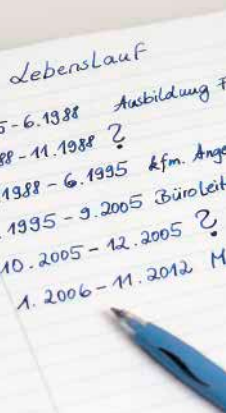 Lebenslauf
5-6.1988 Ausbildung F
88-11.1988 ?
1988-6.1995 kfm. Ange
.1995-9.2005 Büroleit
10.2005-12.2005 ?
1.2006-11.2012 M